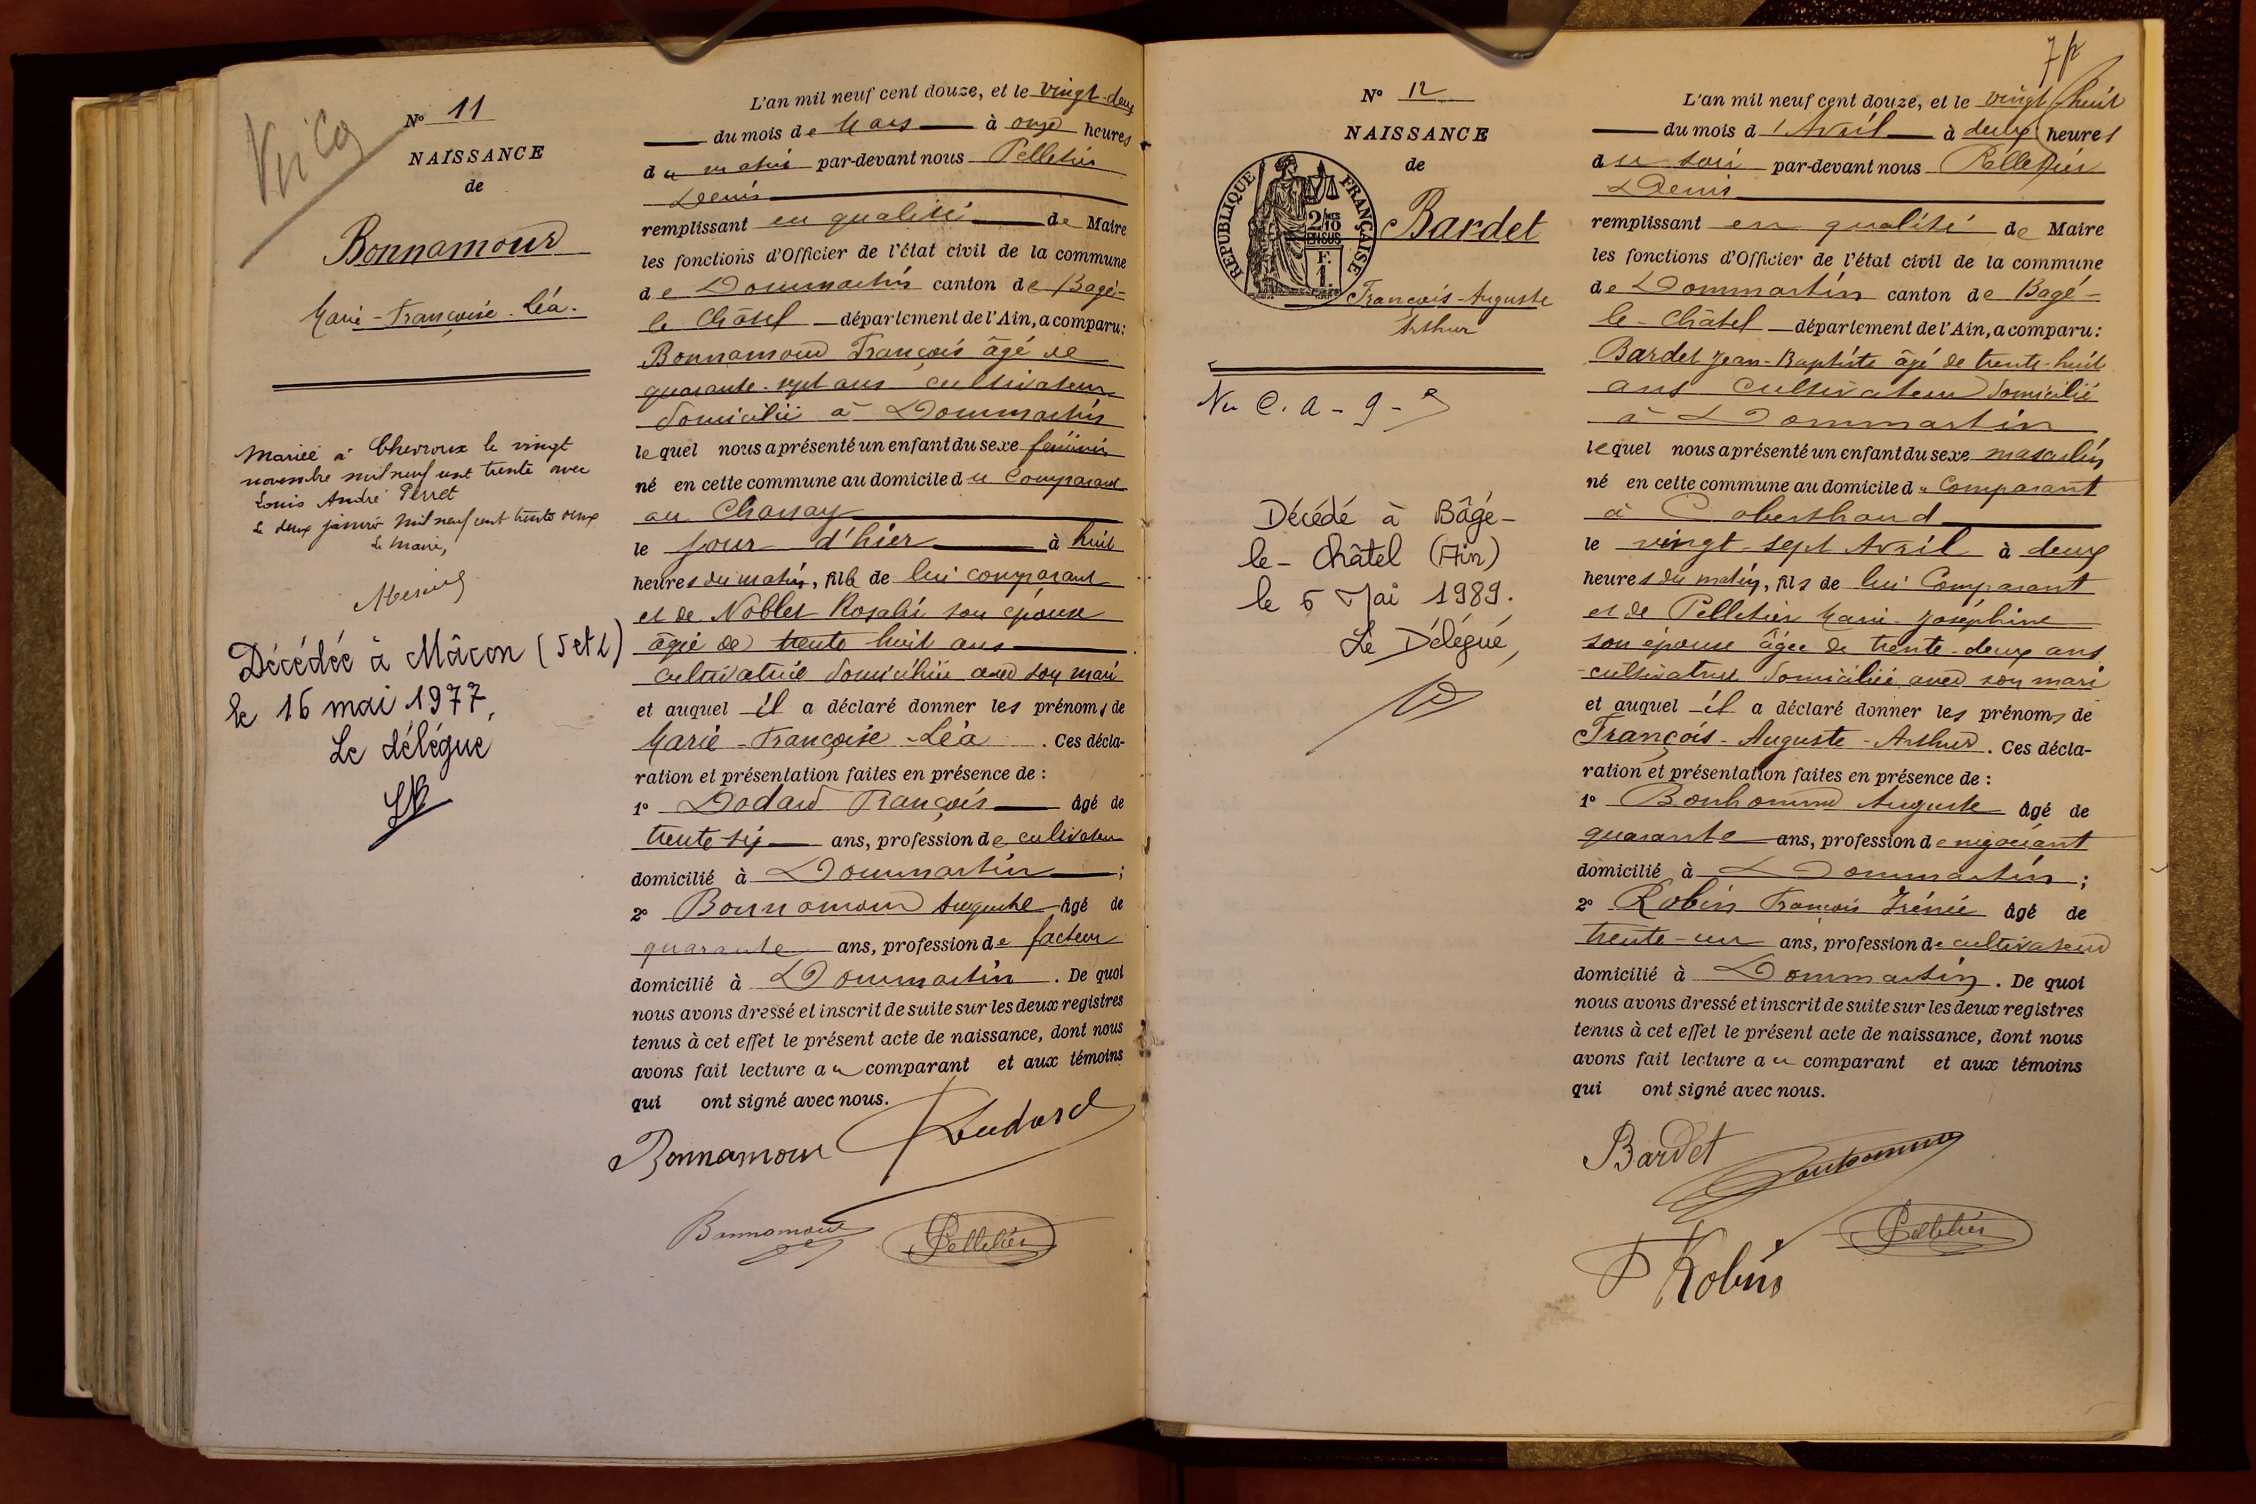 Nº 11
NAISSANCE
de
Bonnamour
Marie-Françoise-Léa.
Mariée à Chevroux le vingt
novembre mil neuf cent trente avec
Louis André Perret
Le deux janvier mil neuf cent trente
Le Maire,
Décédée à Mâcon (S et L)
le 16 mai 1977,
Le délégué
L'an mil neuf cent douze, et le vingt-deux
du mois de Mars à onze heures
du matin par-devant nous Pelletier
Denis
remplissant en qualité de Maire
les fonctions d'Officier de l'état civil de la commune
de Dommartin canton de Bagé-
le Châtel département de l'Ain, a comparu:
Bonnamour François âgé de
quarante-sept ans cultivateur
domicilié à Dommartin
lequel nous a présenté un enfant du sexe féminin
né en cette commune au domicile du Comparant
au
le jour d'hier à huit
heures du matin, fille de lui comparant
et de Noblet Rosalie son épouse
âgée de trente-huit ans
cultivatrice domiciliée avec son mari
et auquel il a déclaré donner les prénoms de
Marie-Françoise-Léa. Ces décla-
ration et présentation faites en présence de :
1º Dodard François âgé de
trente six ans, profession de cultivateur
domicilié à Dommartin ;
2º Bonnamour Auguste âgé de
quarante ans, profession de facteur
domicilié à Dommartin. De quoi
nous avons dressé et inscrit de suite sur les deux registres
tenus à cet effet le présent acte de naissance, dont nous
avons fait lecture au comparant et aux témoins
qui ont signé avec nous.
Bonnamour Dodard
Bonnamour Pelletier
Nº 12
NAISSANCE
de
REPUBLIQUE FRANÇAISE
2/10
EN SUS
F.
1.
Bardet
François-Auguste
Arthur
Décédé à Bâgé-
le-Châtel (Ain)
le 5 Mai 1989.
Le Délégué,
L'an mil neuf cent douze, et le vingt huit
du mois d'Avril à deux heures
du soir par-devant nous Pelletier
Denis
remplissant en qualité de Maire
les fonctions d'Officier de l'état civil de la commune
de Dommartin canton de Bagé-
le-Châtel département de l'Ain, a comparu:
Bardet Jean-Baptiste âgé de trente-huit
ans cultivateur domicilié
à Dommartin
lequel nous a présenté un enfant du sexe masculin
né en cette commune au domicile du Comparant
à
le vingt-sept Avril à deux
heures du matin, fils de lui Comparant
et de Pelletier Marie-Joséphine
son épouse âgée de trente-deux ans
cultivatrice domiciliée avec son mari
et auquel il a déclaré donner les prénoms de
François-Auguste-Arthur. Ces décla-
ration et présentation faites en présence de :
1º Bonhomme Auguste âgé de
quarante ans, profession de négociant
domicilié à Dommartin ;
2º Robin François Irénée âgé de
trente-un ans, profession de cultivateur
domicilié à Dommartin. De quoi
nous avons dressé et inscrit de suite sur les deux registres
tenus à cet effet le présent acte de naissance, dont nous
avons fait lecture au comparant et aux témoins
qui ont signé avec nous.
Bardet
Bonhomme
Pelletier
Robin